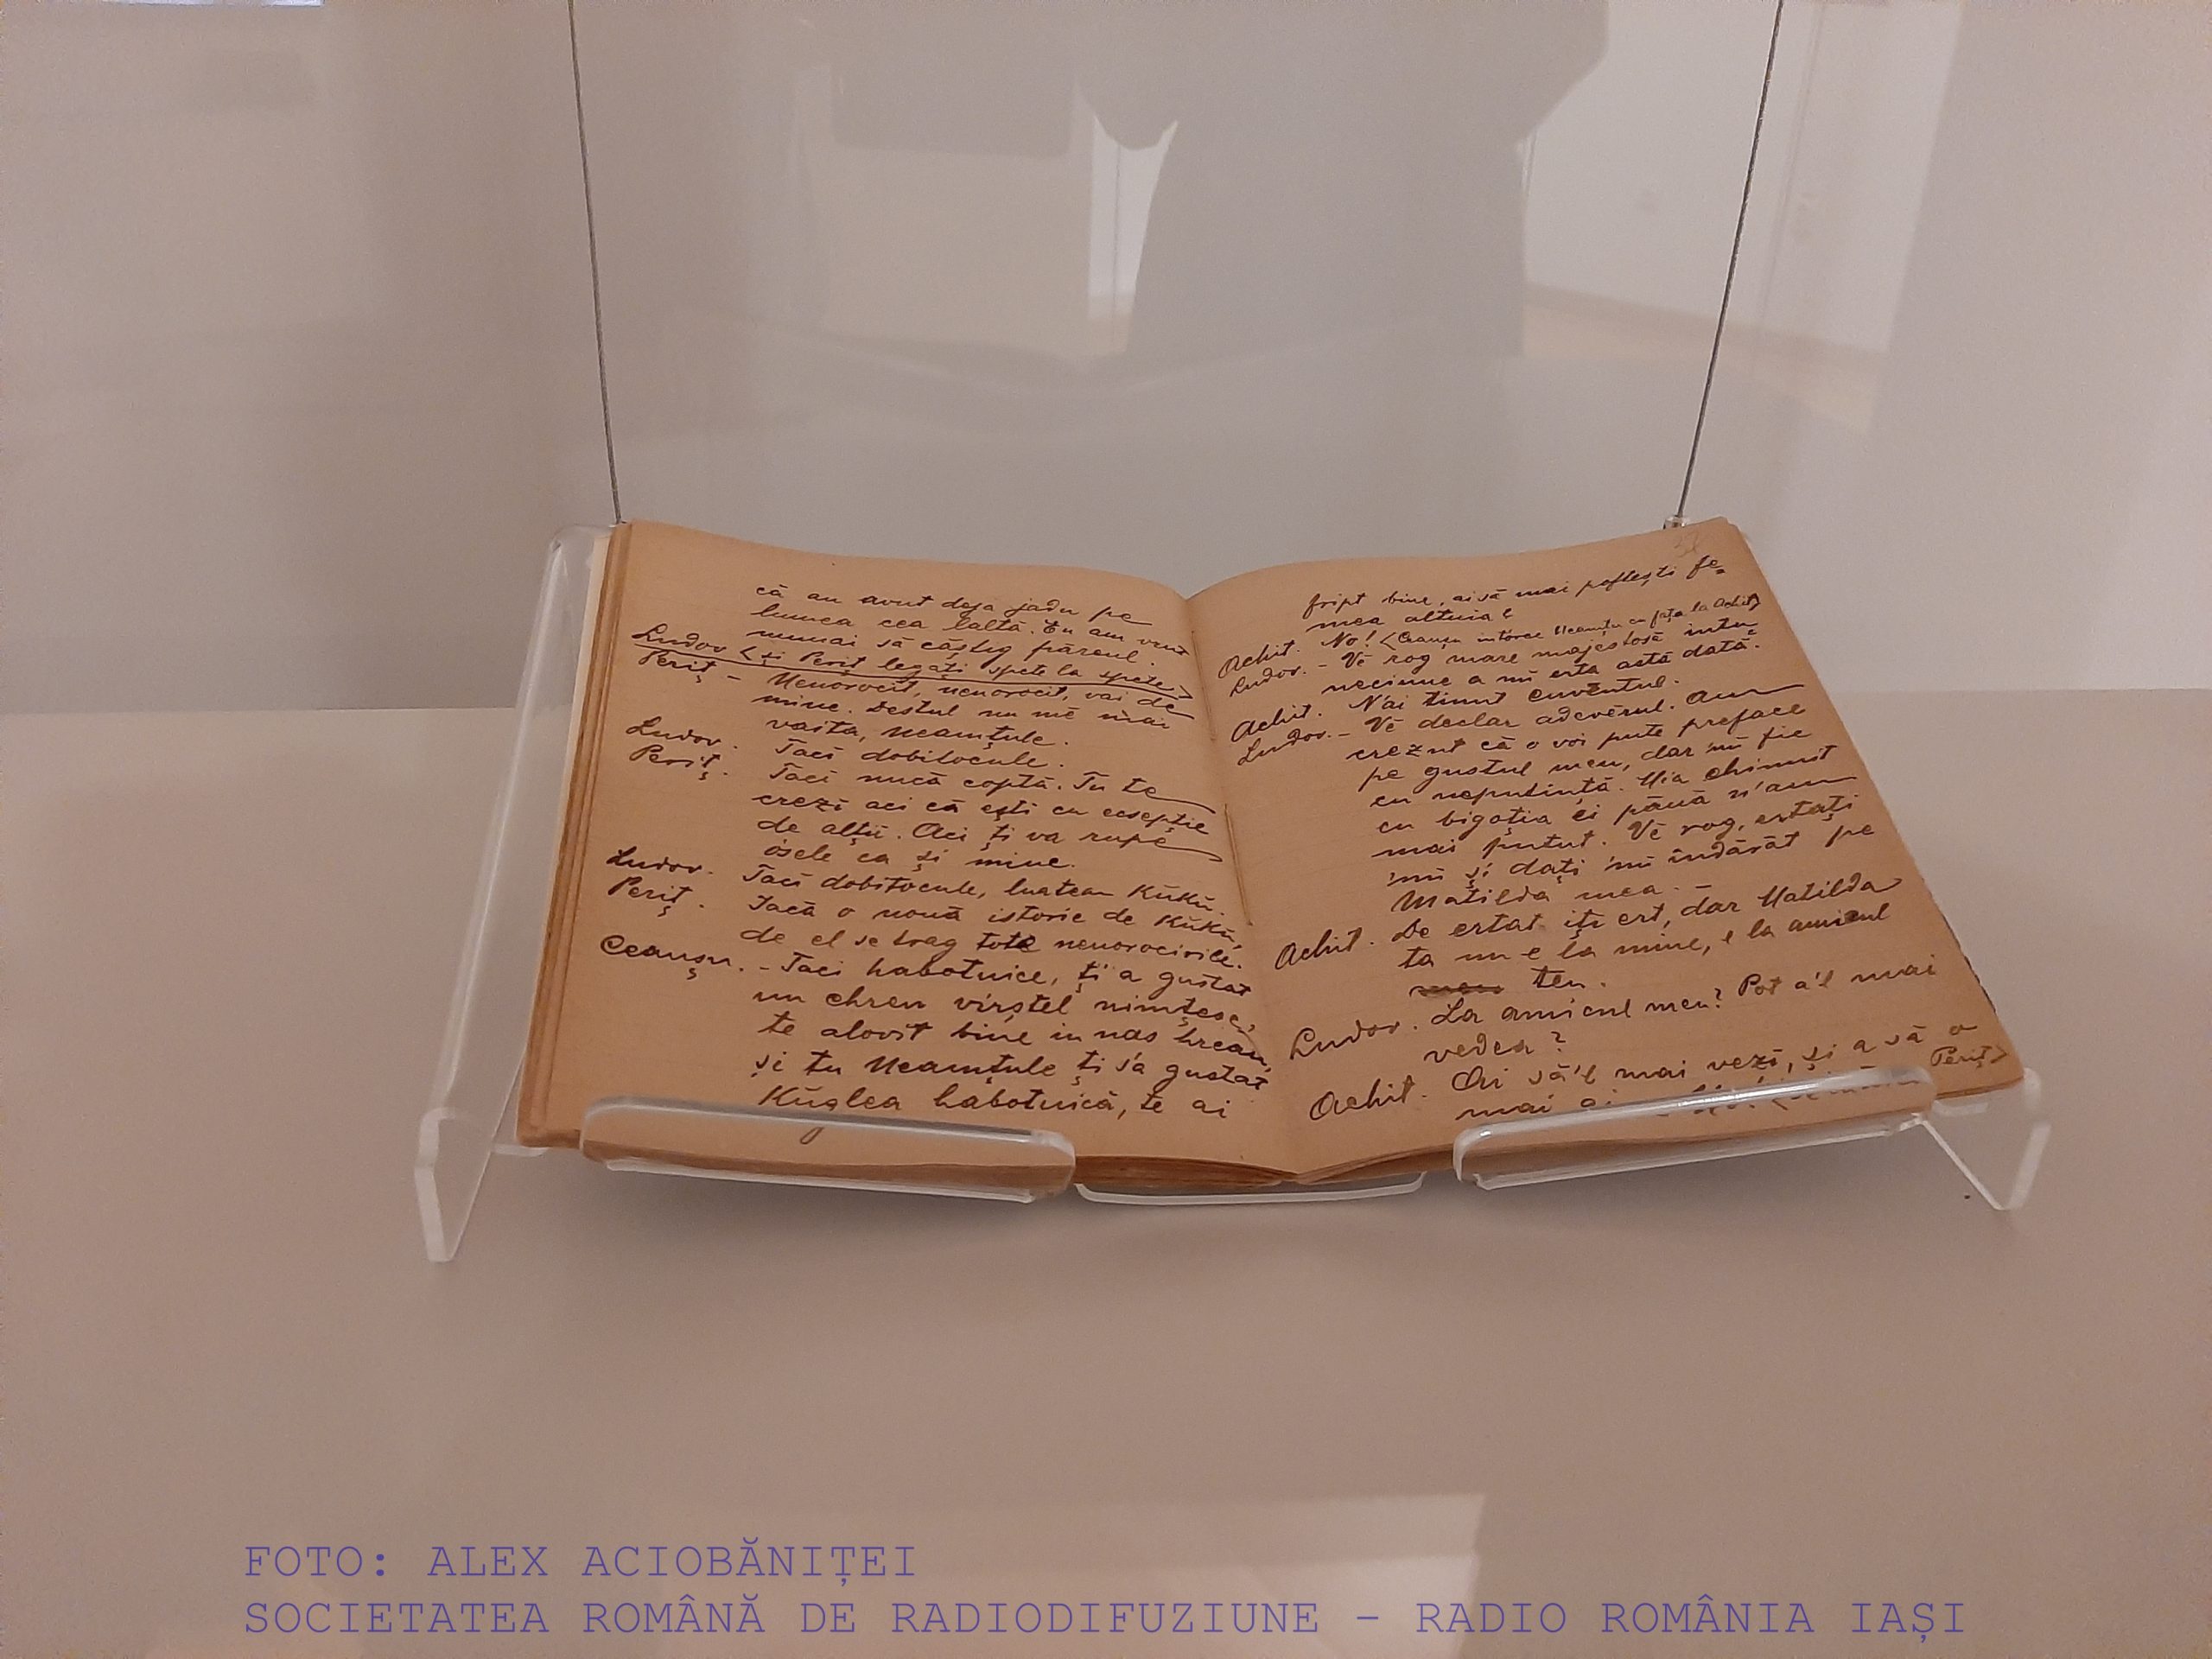 că au avut deja jadu pe
lumea cea laltă. Eu am vrut
numai să câștig păreul.
Ludov <și Periț legați spete la spete>
Periț – Nenorocit, nenorocit, vai de
mine. Destul nu mĕ mai
vaita, Neamțule.
Ludov. Tacĭ dobitocule.
Periț. Tacĭ nucă coptă. Tu te
crezĭ aci că eștĭ cu ecsepție
de alțiĭ. Aci țĭ va rupe
osele ca și mine.
Ludov. Tacĭ dobitocule, luatean Kŭkŭ.
Periț. Iacă o nouă istorie de Kŭkŭ,
de el se trag tote nenorocirile.
Ceaușu. – Taci habotnice, ți a gustat
un chren virștel nimțesc,
te alovit bine in nas hrean,
și tu Neamțule ți s'a gustat
Kŭglea habotnică, te ai
fript bine, ai să mai poftești fe-
mea altuia?
Achit. No! <Ceaușu intorce Neamțu cu fața la Achit>
Ludov. – Vĕ rog mare majestosă intu
neciune a mĭ erta astă dată.
Achit. N'ai tinut cuvĕntul.
Ludov. – Vĕ declar adevĕrul. Am
crezut că o voi pute preface
pe gustul meu, dar 'mĭ fie
cu neputință. M'a chinuit
cu bigoția ei până n'am
mai putut. Vĕ rog, ertați
'mĭ și dați 'mĭ îndărăt pe
Matilda mea. –
Achit. De ertat iți ert, dar Matilda
ta nu-e la mine, e la amicul
teu.
Ludov. La amicul meu? Pot a'l mai
vedea?
Achit. Ai să'l mai vezĭ, și a să o
mai ai Periț>
FOTO: ALEX ACIOBĂNIȚEI
SOCIETATEA ROMÂNĂ DE RADIODIFUZIUNE – RADIO ROMÂNIA IAȘI